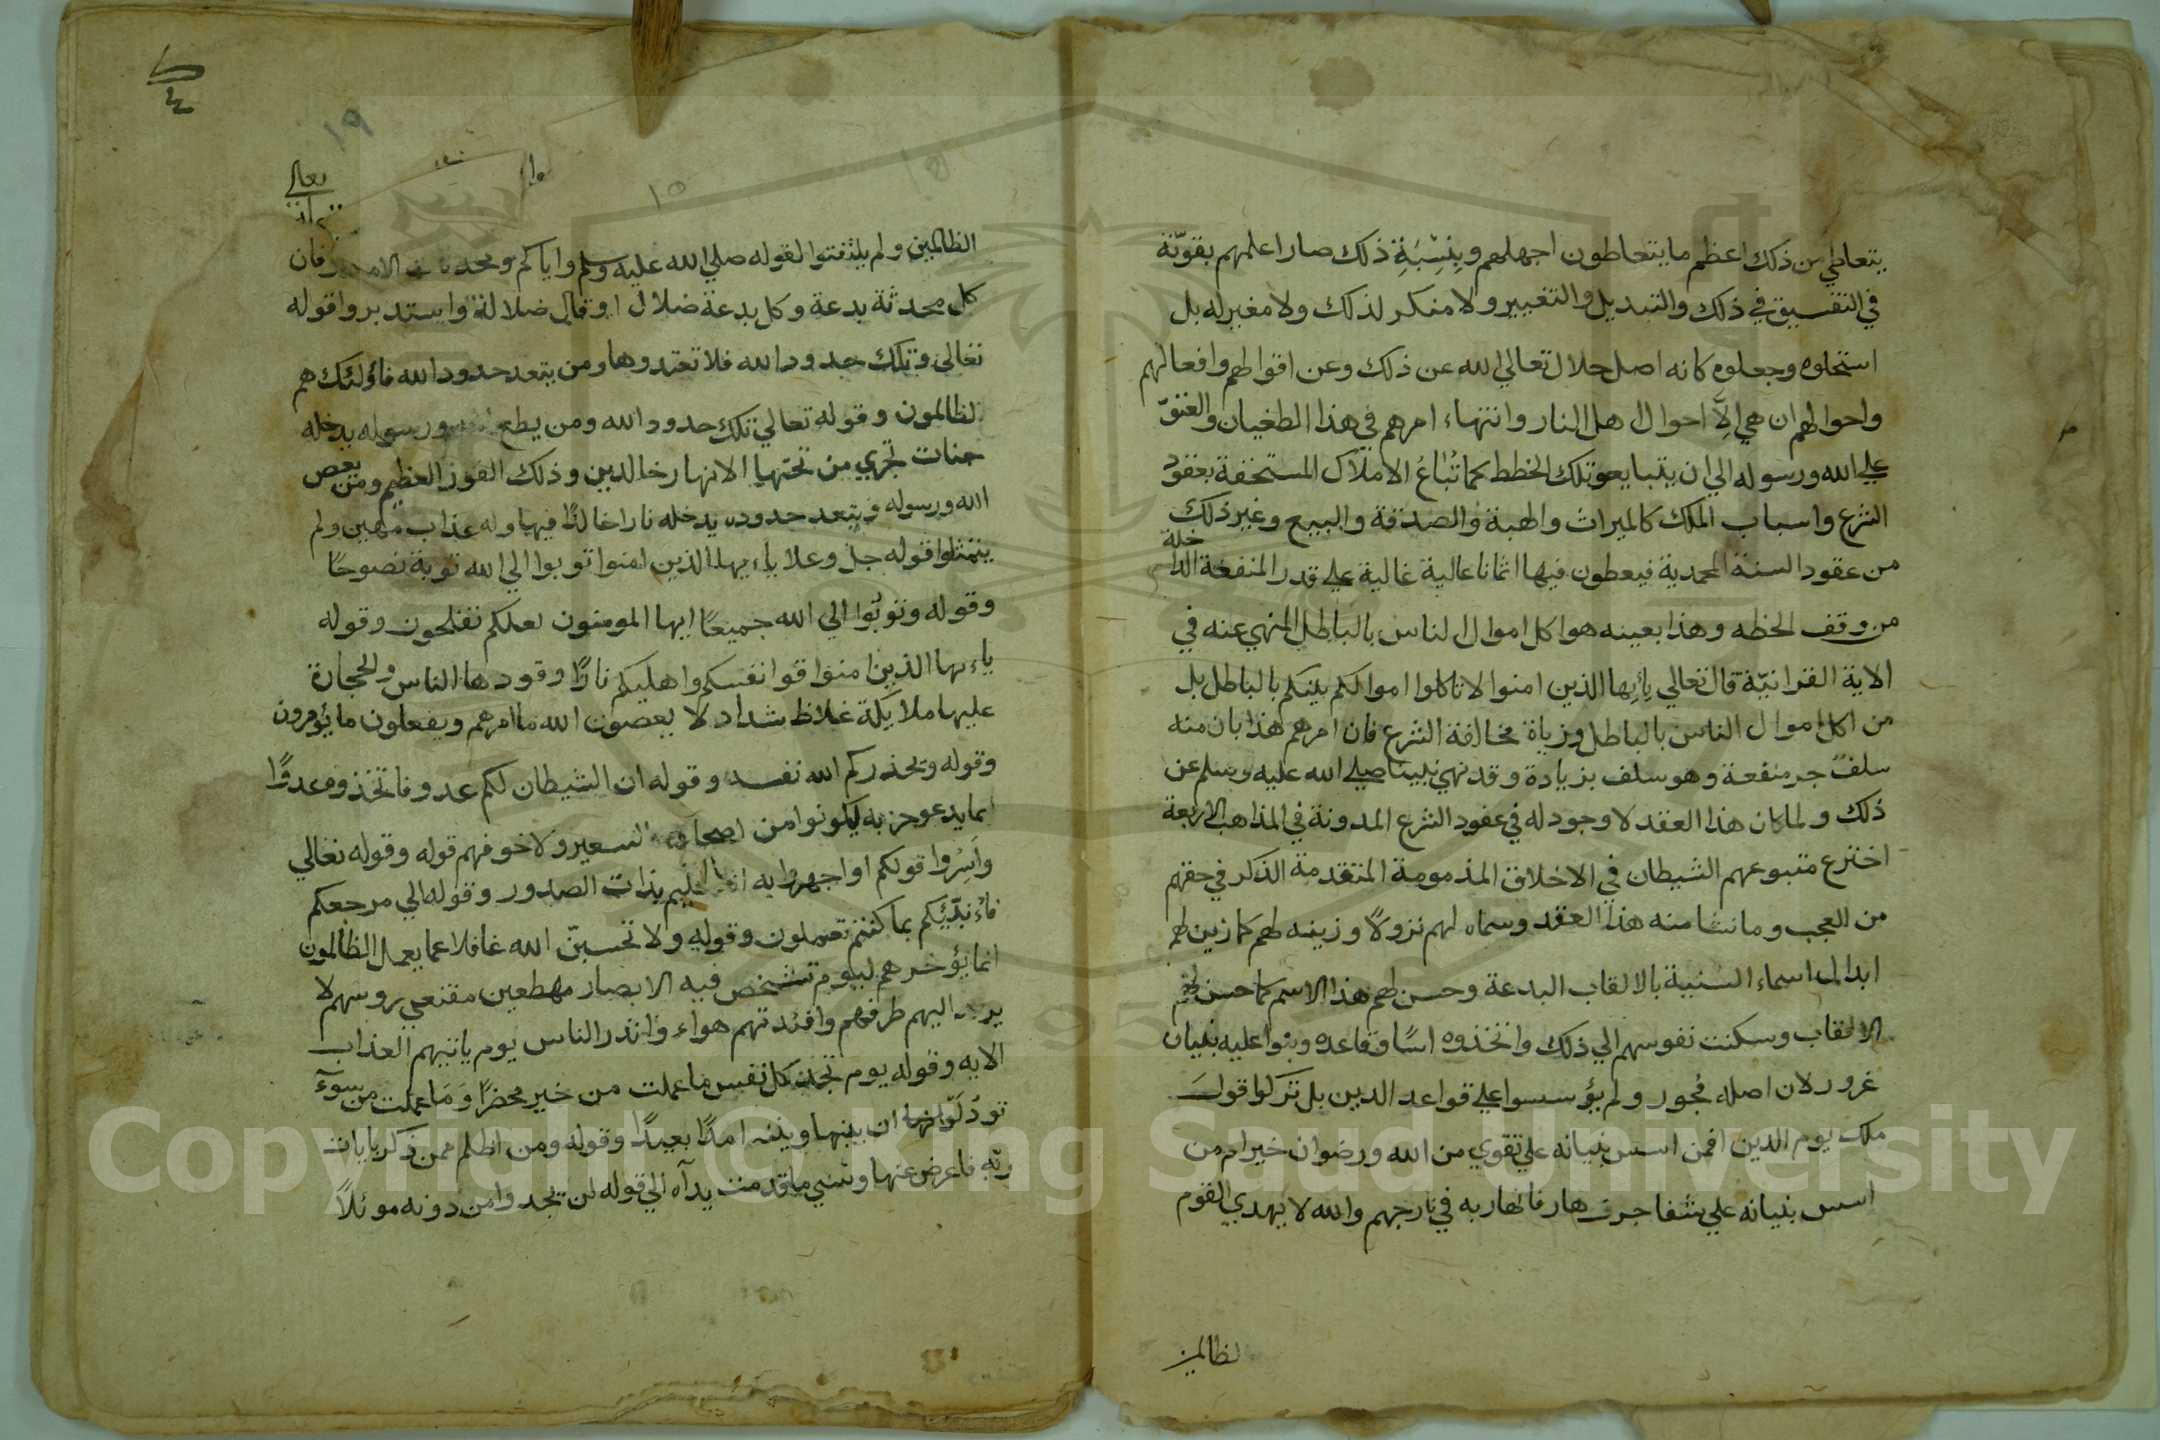 يتعاطي من ذلك اعظم ما يتعاطون اجهلهم وبنسبة ذلك صار اعلمهم بقوّته
في التفسيق في ذلك والتبديل والتغيير ولا منكر لذلك ولا مغير له بل
استحلوه وجعلوه كانه اصل حلال تعالي الله عن ذلك وعن اقوالهم وافعالهم
واحوالهم ان هي الَّا احوال اهل النار وانتهاء امرهم في هذا الطغيان والعتوّ
علي الله ورسوله الي ان يتبايعو تلك الخطط كما تُبٰاعُ الاملاك المستحقة بعقود
الشرع واسباب الملك كالميراث والهبة والصدقة والبيع وغير ذلك
من عقود السنة المحمدية فيعطون فيها اثمانا عالية غالية علي قدر المنفعة الداخلة
من وقف الخطه وهذا بعينه هو اكل اموال الناس بالباطل المنهي عنه في
الاية القرانيّة قال تعالي يأيها الذين امنوا لا تاكلوا اموالكم بينكم بالباطل بل
من اكل اموال الناس بالباطل وزياة مخالفة الشرع فان امرهم هذا بان منه
سلف جر منفعة وهو سلف بزيادة وقد نهي نبينا صلي الله عليه وسلم عن
ذلك ولما كان هذا العقد لا وجود له في عقود الشرع المدونة في المذاهب الاربعة
اخترع متبوعهم الشيطان في الاخلاق المذمومة المتقدمة الذكر في حقهم
من العجب وما نشا منه هذا العقد وسماه لهم نزولًا وزينه لهم كما زين لهم
ابدال اسماء السنية بالالقاب البدعة وحسن لهم هذا الاسم كما حسن لهم
الالقاب وسكنت نفوسهم الي ذلك واتخذوه اسًا وقاعده وبنوا عليه بنيان
غرور لان اصله فجور ولم يؤسسوا علي قواعد الدين بل تركوا قول
ملك يوم الدين افمن اسس بنيانه علي تقوي من الله ورضوان خير ام من
اسس بنيانه علي شفا جرف هار فانهار به في نار جهنم والله لا يهدي القوم
لظالمين
١٩
١٥
تعالي
الظالمين ولم يلتفتوا لقوله صلي الله عليه وسلم واياكم ومحدثات الامور فان
كل محدثة بدعة وكل بدعة ضلال او قال ضلالة واستدبروا قوله
تعالي وتلك حدود الله فلا تعتدوها ومن يتعد حدود الله فاؤلئك هم
لظالمون وقوله تعالي تلك حدود الله ومن يطع ورسوله يدخله
جنات تجري من تحتها الانهار خالدين وذلك الفوز العظيم ومن يعص
الله ورسوله ويتعد حدوده يدخله نارا خالدًا فيها وله عذاب مهين ولم
يتمثلوا قوله جل وعلا يأيها الذين امنوا توبوا الي الله توبة نصوحًا
وقوله وتوبُوا الي الله جميعًا ايها المومنون لعلكم تفلحون وقوله
يأيها الذين امنوا قوا انفسكم واهليكم نارًا وقودها الناس والحجارة
عليها ملايكة غلاظ شداد لا يعصون الله ما امرهم ويفعلون ما يؤمرون
وقوله ويحذركم الله نفسه وقوله ان الشيطان لكم عدو فاتخذوه عدوًا
انما يدعو حزبه ليكونوا من اصحاب السعير ولا خوفهم قوله وقوله تعالي
وأَسِرُوا قولكم او اجهروا به انه عليم بذات الصدور وقوله الي مرجعكم
فأنبّئكم بما كنتم تعملون وقوله ولا تحسبنّ الله غافلا عما يعمل الظالمون
انما يؤخرهم ليوم تشخص فيه الابصار مهطعين مقنعي روسهم لا
يرتد اليهم طرفهم وافئدتهم هواء وانذر الناس يوم ياتيهم العذاب
الايه وقوله يوم تجد كل نفس ما عملت من خير محضرًا وَمَا عملت من سوء
تودّ لَوْ انها ان بينها وبينه امدًا بعيدًا وقوله ومن اظلم ممن ذكر بايات
ربّه فاعرض عنها ونسي ما قدمت يدآه الي قوله لن يجدوا من دونه موئلًا
Copyright © King Saud University